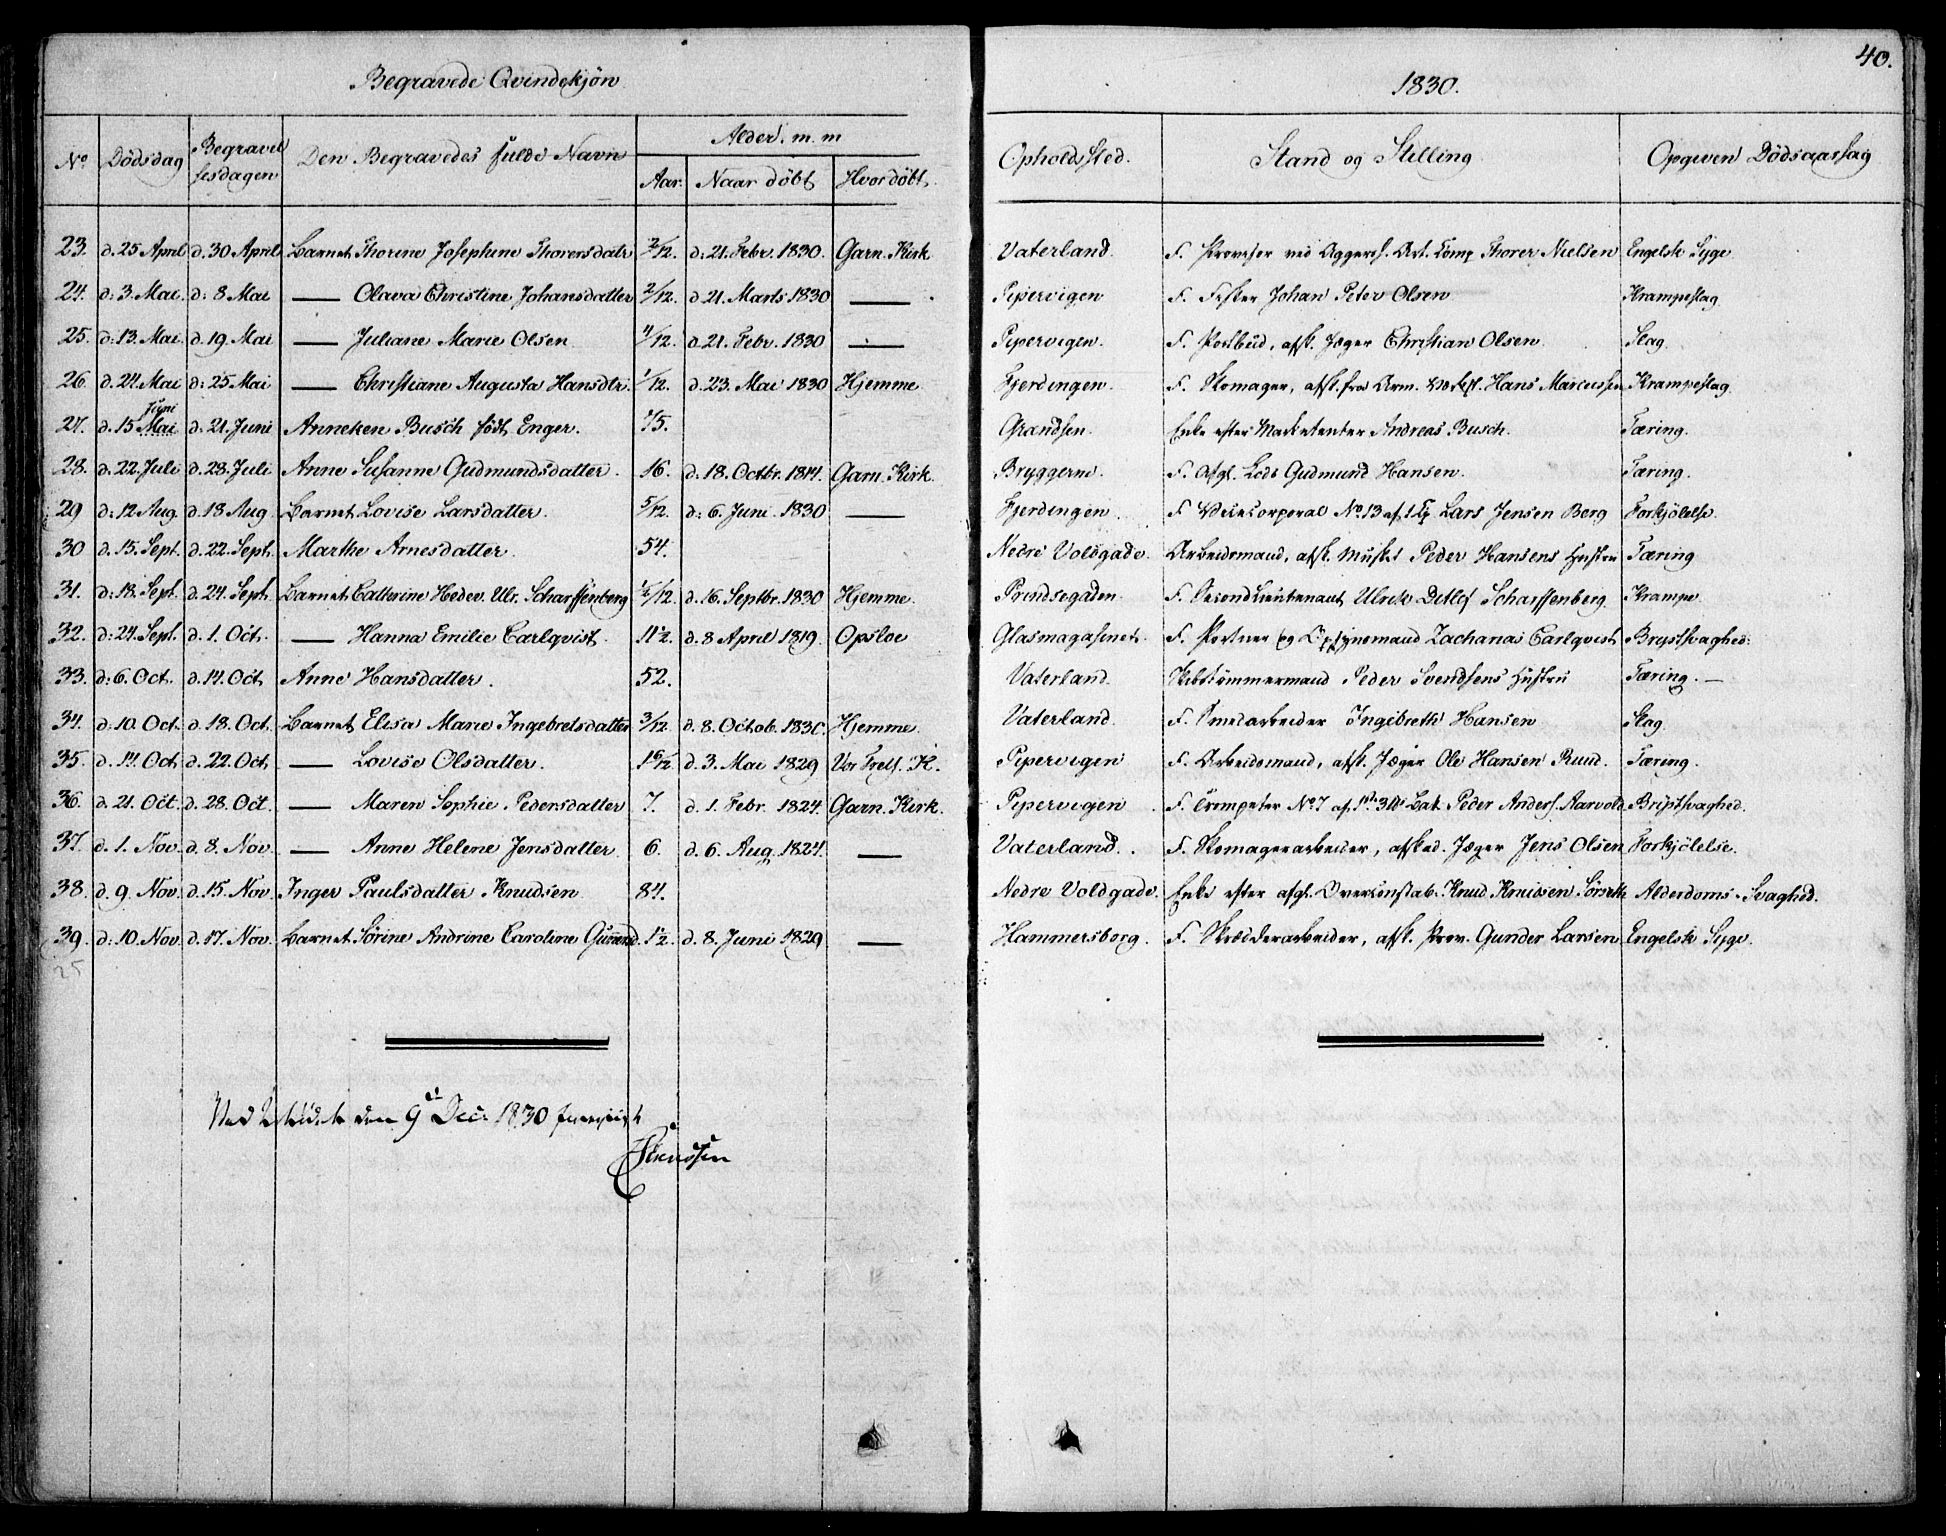 40.
Begravede Qvindekjøn
1830.
No Dødsdag Begravelsesdagen Den Begravedes fulde Navn Alder m. m Aar. Naar døbt Hvor døbt. Opholdssted. Stand og Stilling Opgiven Dødsaarsag
23. d. 25 April d. 30 April Barnet Thorine Josephine Thorersdatr 2/12. d: 21. Febr. 1830. Garn. Kirk Vaterland. F. Proviser ved Aggersh. Art. Comp Thorer Nielsen Engelsk Syge
24. d: 3. Mai. d: 8 Mai — Olava Christine Johansdatter 2/12. d. 21. Marts 1830 — Pipervigen F. Fisker Johan Peter Olsen Krampeslag
25. d: 13. Mai. d. 19. Mai — Juliane Marie Olsen 4/12. d. 21. Febr. 1830 — Pipervigen. F. Postbud, afsk. Jæger Christian Olsen Slag.
26 d. 24. Mai d: 25 Mai — Christiane Augusta Hansdtr. 1/12. d. 23. Mai 1830 Hjemme Fjerdingen. F. Skomager, afsk. fra Arm. Værkst. Hans Marcussen Krampeslag.
27. d. 15 Mai Juni d. 21. Juni Anneken Busch født Enger. 75. Grændsen. Enke efter Marketenter Andreas Busch. Tæring.
28. d. 22. Juli d. 28. Juli Anne Susanne Gudmundsdatter. 16. d. 18. Octbr. 1814. Garn. Kirk. Bryggerne F. afgl. Lods Gudmund Hansen. Tæring.
29 d: 12 Aug. d. 18 Aug Barnet Lovise Larsdatter. 5/12 d: 6. Juni. 1830 — Fjerdingen. F. Vicecorporal No 13 af 1 Cp Lars Jensen Berg Forkjölelse.
30 d. 15. Sept. d. 22. Sept. Marthe Arnesdatter. 54. Nedre Voldgade. Arbeidsmand, afsk. Musket Peder Hansens Hustru Tæring
31. d: 18. Sept. d. 24. Sept. Barnet Cathrine Hedev. Ulr. Scharffenberg /12 d. 16. Septbr. 1830 Hjemme. Prindsegaden. F. Secondlieutenant Ulrik Detlef Scharffenberg Krampe.
32. d: 24. Sept. d. 1. Oct. — Hanna Emilie Carlqvist. 11½. d. 8 April 1819. Opsloe Glasmagasinet. F. Portner og Opsynsmand Zacharias Carlqvist Brystsvaghed:
33. d: 6. Oct. d. 14. Oct Anne Hansdatter. 52. Vaterland. Skibstömmermand Peder Svendsens Hustru Tæring. —
34. d: 10. Oct. d. 18. Oct. Barnet Elisa Marie Ingebretsdatter 3/12 d. 8. Octob. 1830. Hjemme. Vaterland. F. Smedarbeider Ingibreth Hansen Slag.
35. d. 14. Oct d. 22. Oct — Lovise Olsdatter. 1 6/12 d. 3. Mai 1829 Vor Frels. K. Pipervigen F. Arbeidsmand, afsk. Jæger Ole Hansen Ruud. Tæring.
36. d. 21. Oct. d. 28. Oct. — Maren Sophie Pedersdatter 7. d. 1. Febr. 1824. Garn. Kirk. Pipervigen F. Trompeter No 7 af 1ste 3 ℔s Bat. Peder Anders. Aarvold Bristsvaghed.
37. d. 1. Nov. d. 8. Nov. — Anne Helene Jensdatter 6. d. 6. Aug. 1824. — Vaterland. F. Skomagerarbeider, afsked. Jæger Jens Olsen Forkjölelse.
38. d. 9. Nov. d. 15. Nov. Inger Paulsdatter Knudsen 84. Nedre Voldgade. Enke efter afgl. Overconstab. Knud Knudsen Sörseth Alderdoms-Svaghed.
39. d: 10. Nov. d. 17. Nov. Barnet Sörine Andrine Caroline Gunnerd. 1½. d. 8. Juni 1829 — Hammersborg. F. Skrædderarbeider, afsk. Prov. Gunder Larsen Engelsk Syge.
25
den 9de Decr 1830